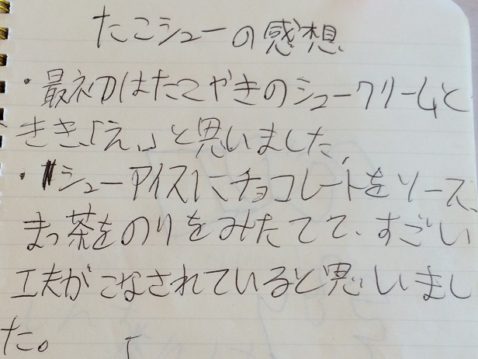 たこシューの感想
・最初はたこやきのシュークリームと
きき、「え、」と思いました。
・シューアイスにチョコレートをソース、
まっ茶をのりをみたてて、すごい
工夫がこなされていると思いまし
た。